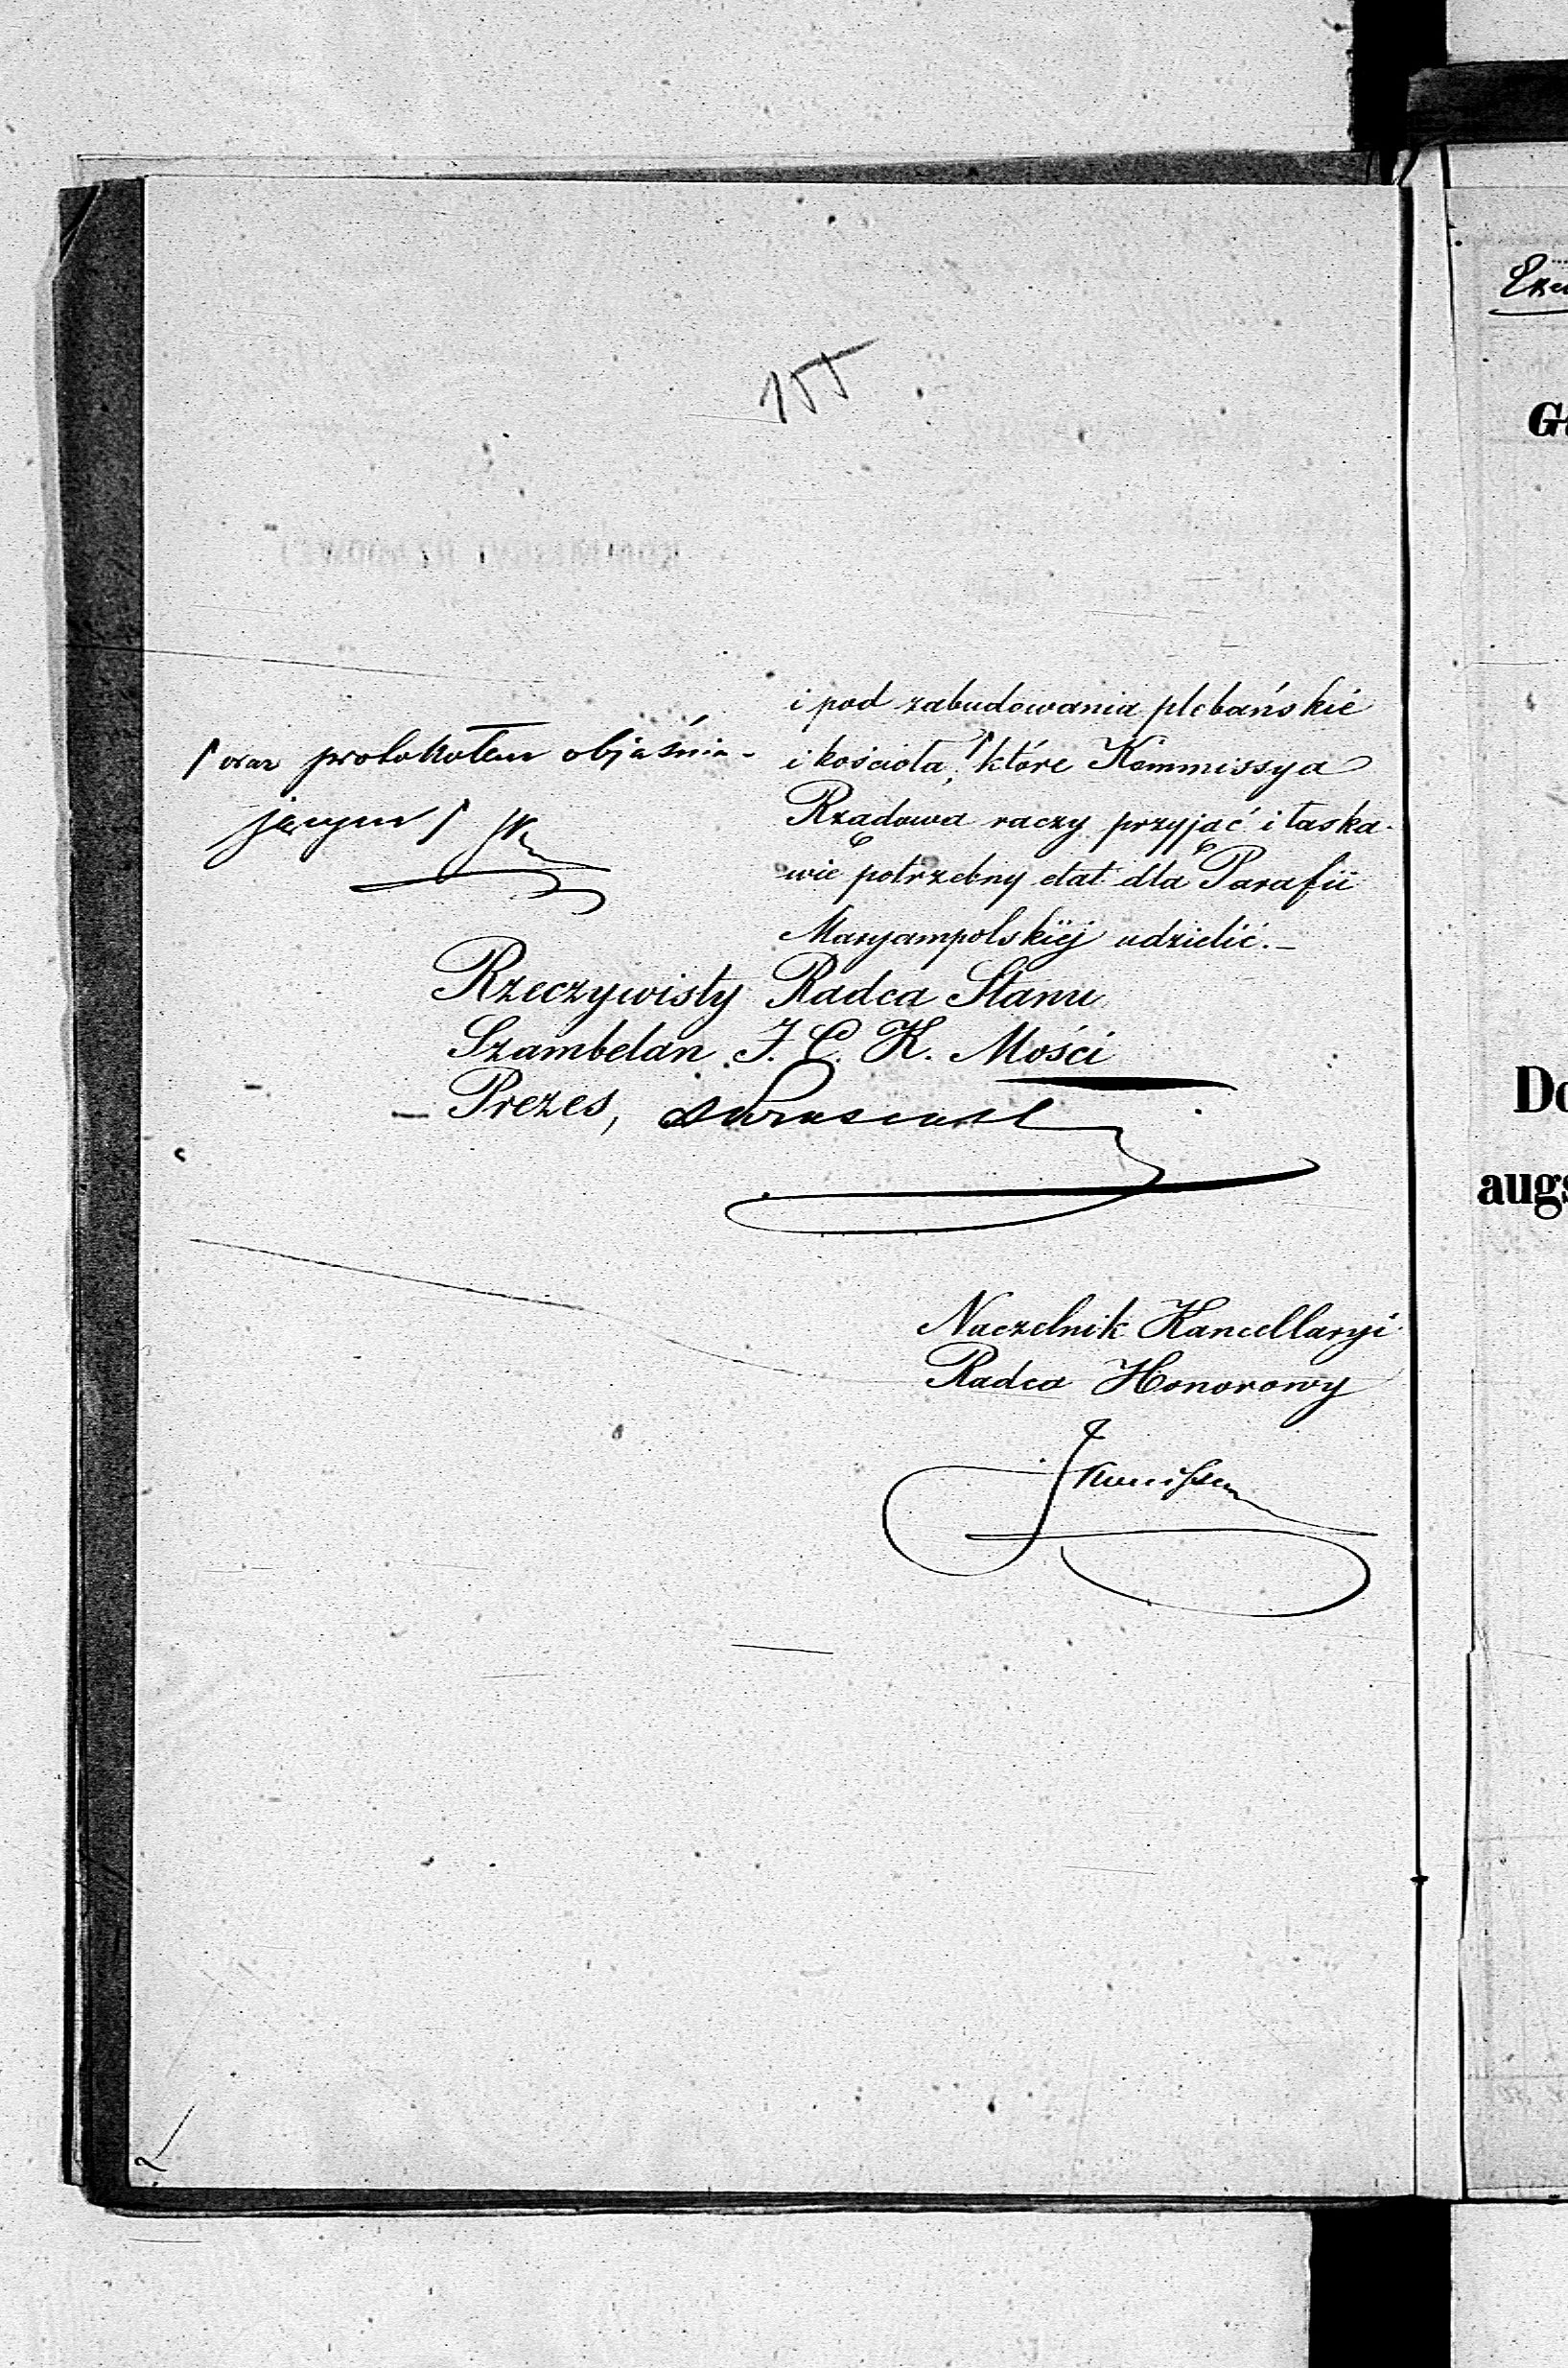 155
i pod zabudowania plebańskié
i kościoła, które Kommissya
Rządowa raczy przyjąć i łaska-
wie potrzebny etat dla Parafii
Maryampolskiéj udzielić.—
/ oraz protokołem objaśnia-
jącym /
Rzeczywisty Radca Stanu
Szambelan J. C. K. Mości
Prezes,
Naczelnik Kancellaryi
Radca Honorowy
Do
augs